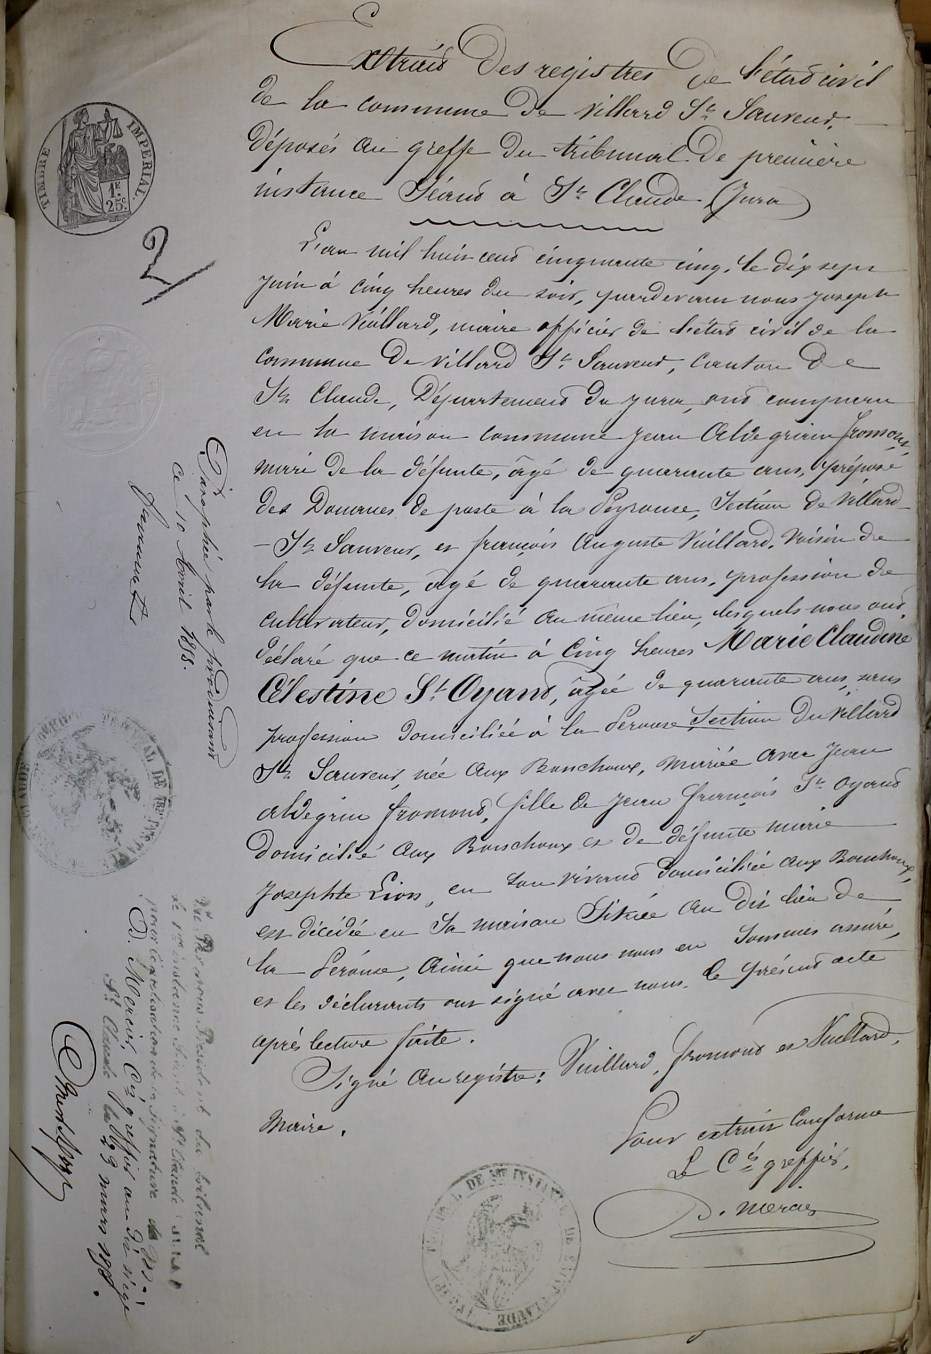 Extrait des registres de l'état civil
de la commune de Villard St Sauveur,
déposés au greffe du tribunal de première
instance Séant à St Claude (Jura)
L'an mil huit cent cinquante cinq, le dix sept
juin à cinq heures du soir, pardevant nous Joseph
Marie Vuillard, maire officier de l'état civil de la
Commune de Villard St Sauveur, canton de
St Claude, Département du Jura, ont comparu
en la maison commune Jean Aldegrin Fromond,
mari de la défunte, âgé de quarante ans, préposé
des Douanes de poste à la Peyrouse, Section de Villard
- St Sauveur, et françois Auguste Vuillard, Voisin de
la défunte, âgé de quarante ans, profession de
cultivateur, domicilié au même lieu, lesquels nous ont
déclaré que ce matin à Cinq heures Marie Claudine
Célestine St Oyand, âgée de quarante ans, sans
profession domiciliée à la Pérouse Section du Villard
St Sauveur, née aux Bouchoux, mariée avec Jean
aldegrin fromond, fille de Jean François St Oyand
domicilié aux Bouchoux et de défunte marie
Josephte Lion, en son vivant domiciliée aux Bouchoux,
est décédée en Sa maison Située au dit lieu de
la Pérouse, Ainsi que nous nous en Sommes assuré,
et les déclarants ont signé avec nous le présent acte
après lecture faite.
Signé au registre: Vuillard, fromond et Vuillard,
Maire.
Pour extrait Conforme
Le Cis greffier,
D. Mercier
TIMBRE IMPERIAL.
1F. 25c.
Paraphée par le produisant
ce 10 Avril 1858.
Vu Par nous Président du tribunal
de 1re instance Séant à St Claude
pour légalisation de la signature de
D. Mercier, Cis greffier au dit siège
St Claude le 23 mars 1858.
TRIBUNAL DE 1RE INSTANCE DE SAINT-CLAUDE